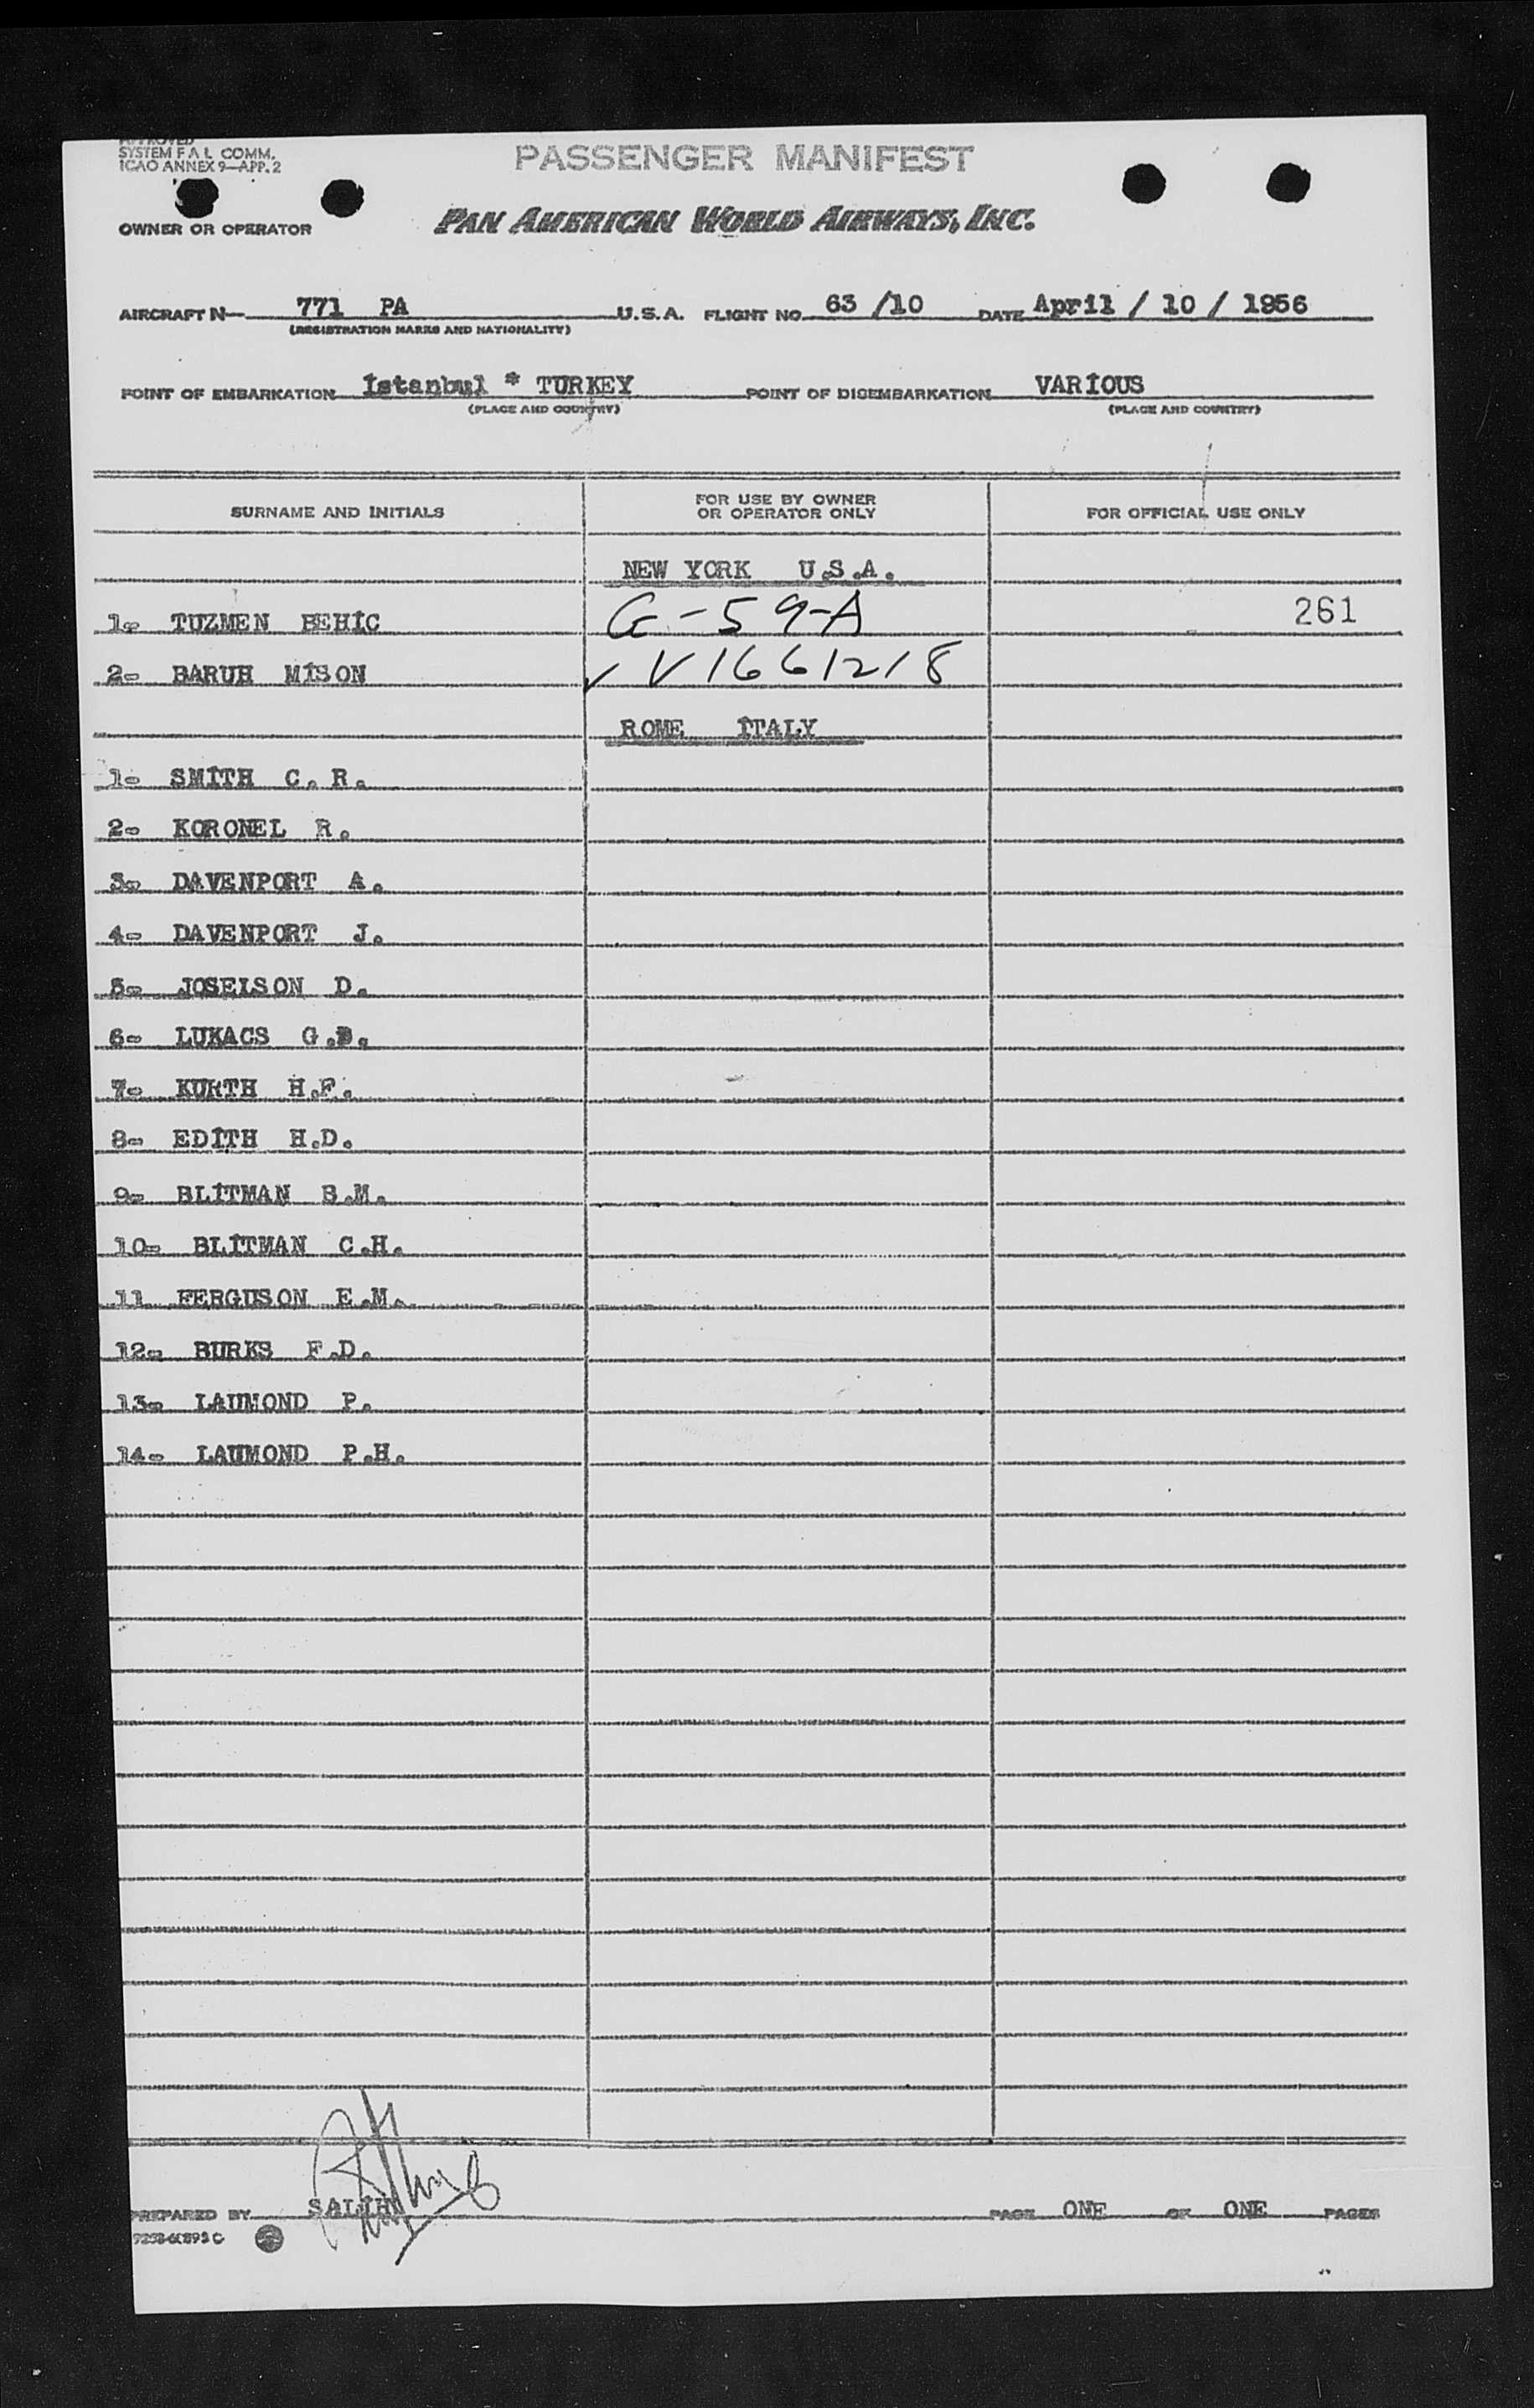 APPROVED
SYSTEM F A L COMM.
ICAO ANNEX 9—APP. 2
PASSENGER MANIFEST
OWNER OR OPERATOR PAN AMERICAN WORLD AIRWAYS, INC.
AIRCRAFT N— 771 PA U.S.A. FLIGHT NO. 63 /10 DATE April / 10 / 1956
(REGISTRATION MARKS AND NATIONALITY)
POINT OF EMBARKATION İstanbul * TURKEY POINT OF DISEMBARKATION VARİOUS
(PLACE AND COUNTRY) (PLACE AND COUNTRY)
SURNAME AND INITIALS FOR USE BY OWNER OR OPERATOR ONLY FOR OFFICIAL USE ONLY
NEW YORK U.S.A.
1- TUZMEN BEHİC G-59-A 261
2- BARUH MİSON ✓ V1661218
ROME İTALY
1- SMİTH C. R.
2- KORONEL R.
3- DAVENPORT A.
4- DAVENPORT J.
5- JOSELSON D.
6- LUKACS G.D.
7- KURTH H.F.
8- EDİTH H.D.
9- BLİTMAN S.M.
10- BLİTMAN C.H.
11 FERGUSON E.M.
12- BURKS F.D.
13- LAUMOND P.
14- LAUMOND P.H.
PREPARED BY SALİH PAGE ONE OF ONE PAGES